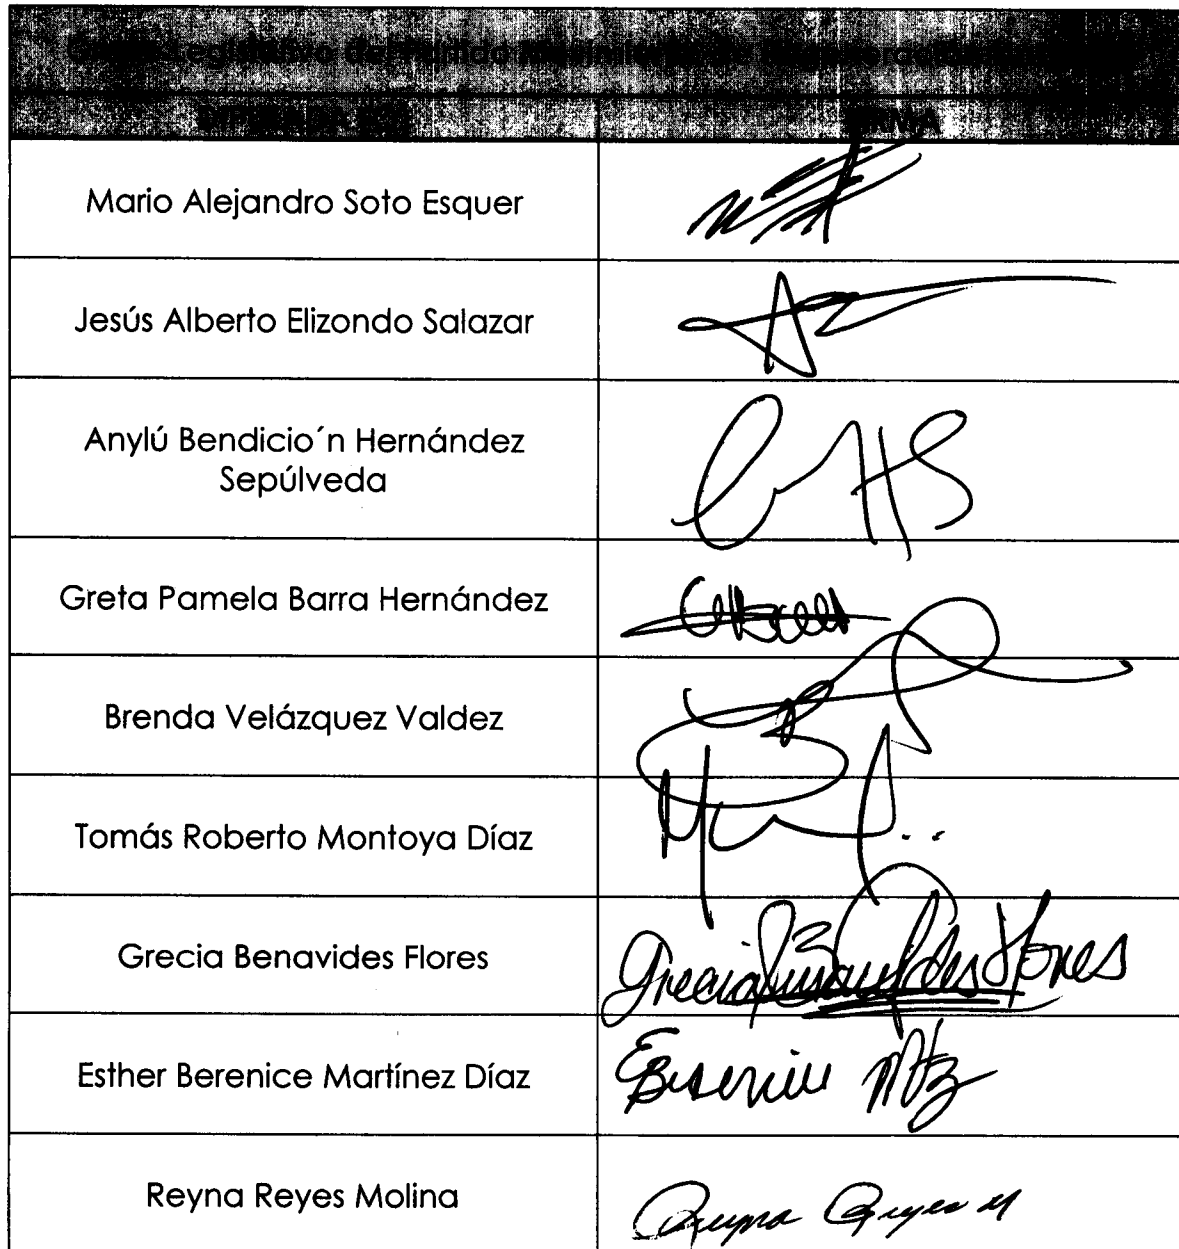 Legislativo del Partido
FIRMA
Mario Alejandro Soto Esquer
Jesús Alberto Elizondo Salazar
Anylú Bendicio´n Hernández
Sepúlveda
Greta Pamela Barra Hernández
Brenda Velázquez Valdez
Tomás Roberto Montoya Díaz
Grecia Benavides Flores
Grecia Benavides Flores
Esther Berenice Martínez Díaz
EBerenice Mtz
Reyna Reyes Molina
Reyna Reyes M